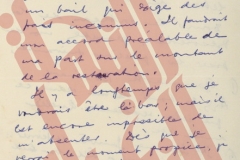 un bail qui exige des
pas inconnus. Il faudrait
un accord préalable de
ma part sur le montant
de la restauration.
Il y a longtemps que je
voulais être là-bas ; mais il
est encore impossible de
m'absenter. Dès que je
verrai le moment propice, je